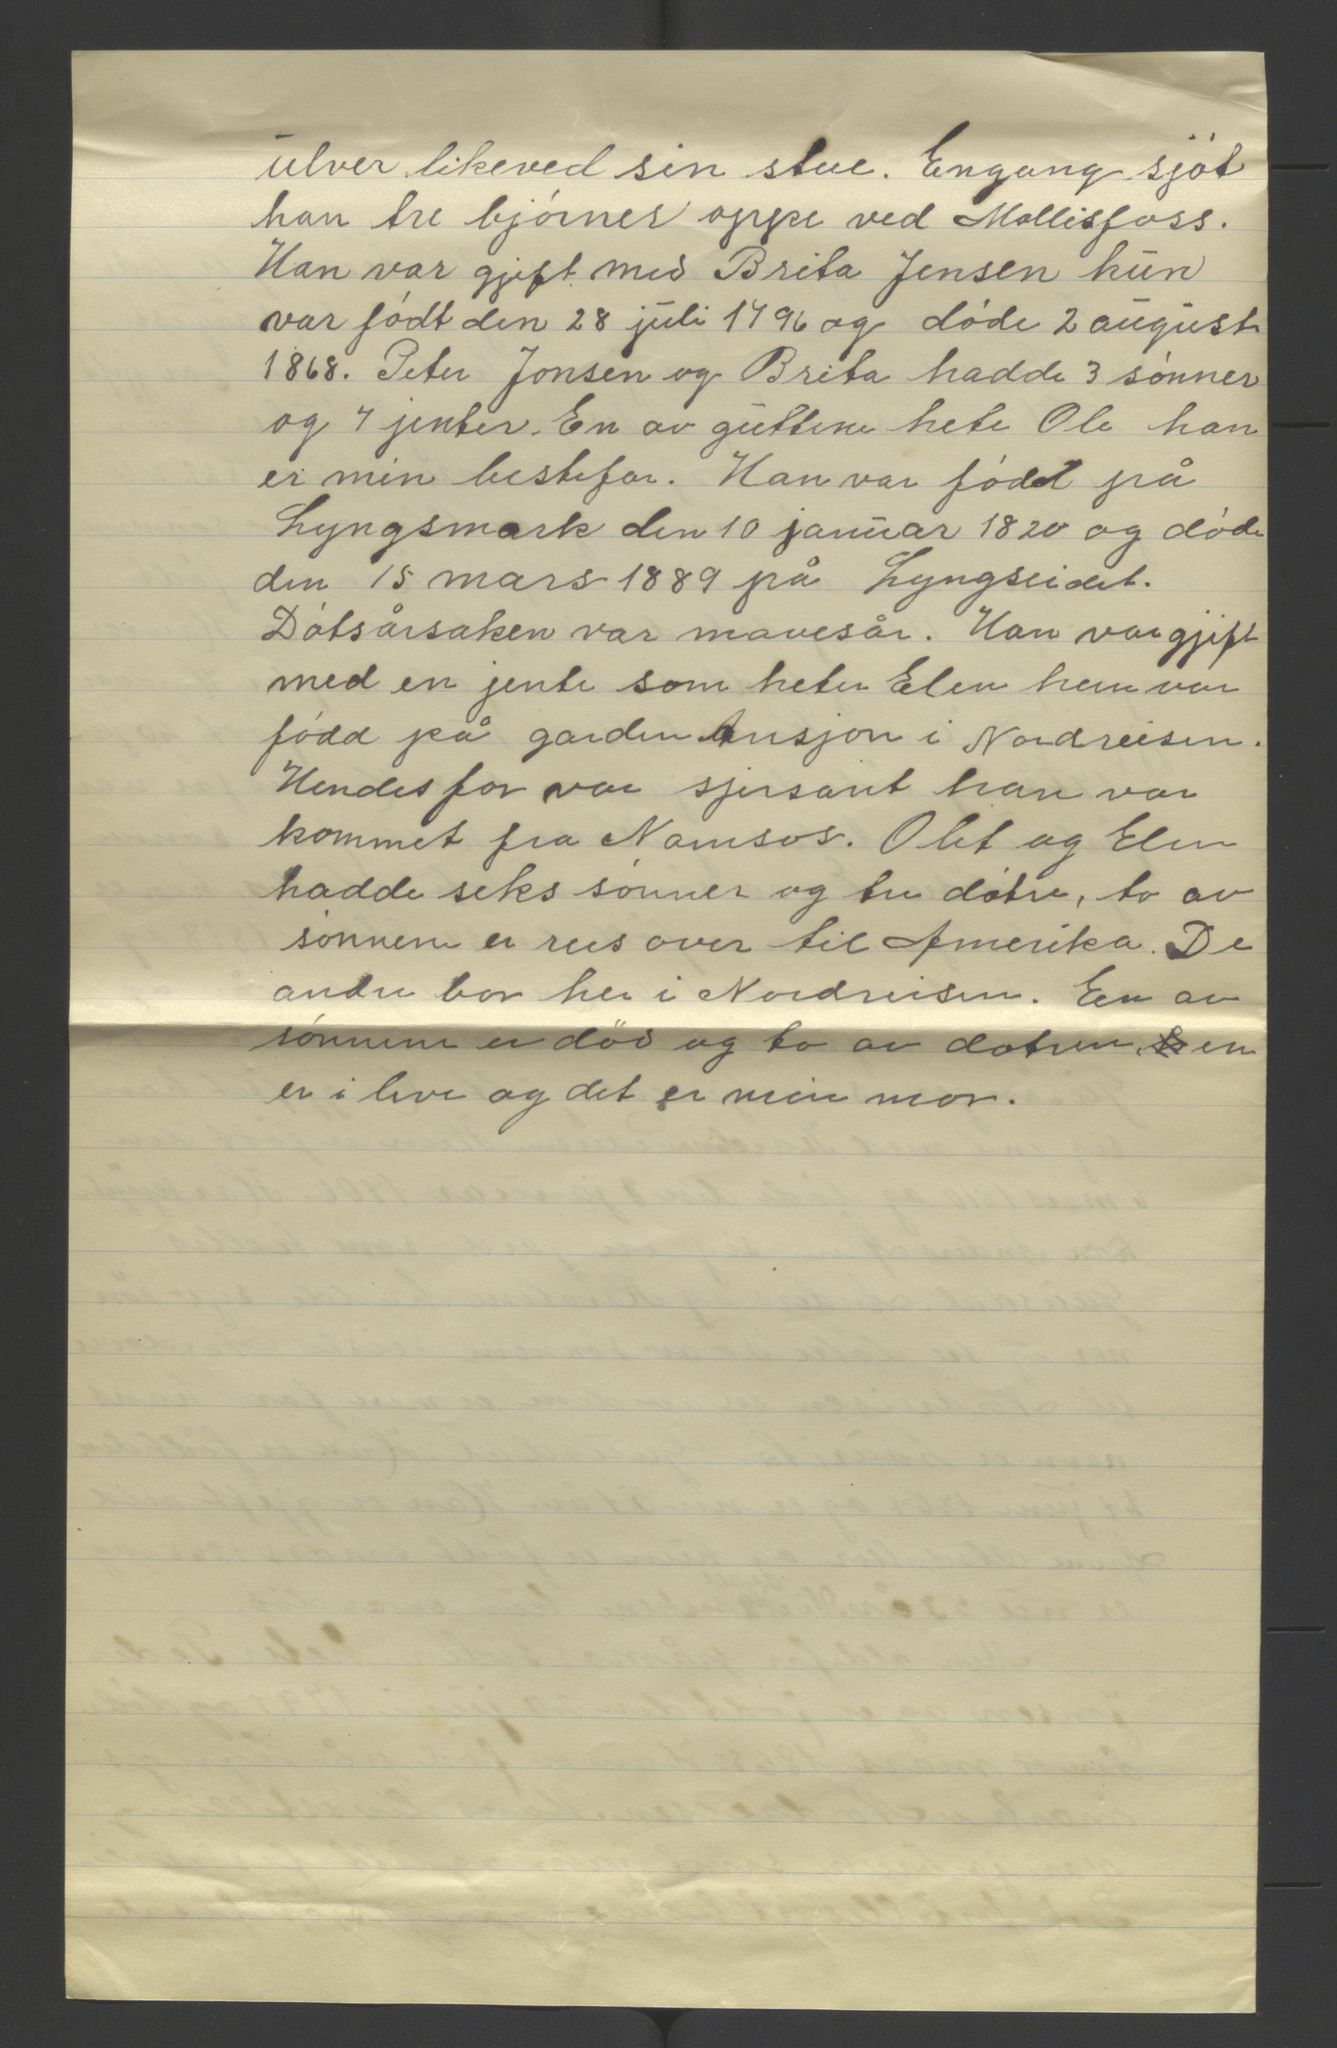 ulver likeved sin stue. Engang sjøt
han tre bjørner oppe ved Mollisfoss.
Han var gjift med Brita Jensen hun
var født den 28 juli 1796 og døde 2 august
1868. Peter Jonsen og Brita hadde 3 sønner
og 7 jenter. En av guttene hete Ole han
er min bestefar. Han var født på
Lyngsmark den 10 januar 1820 og døde
den 15 mars 1889 på Lyngseidet.
Døtsårsaken var mavesår. Han var gjift
med en jente som heter Elen hun var
fødd på garden Ansjon i Nordreisen.
Hendes far var sjersant han var
kommet fra Namsos. Olet og Elen
hadde seks sønner og tre døtre, to av
sønnene er reis over til Amerika. De
andre bor her i Nordreisen. Een av
sønnene er død og to av døtrene, en
er i live og det er min mor.